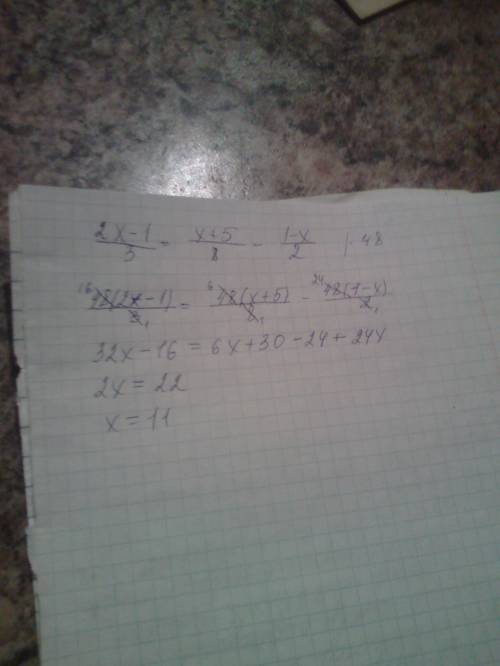 (2x-1)/3 = (x+5)/8 - (1-x)/2 |·48
16 48(2x-1)/3 1 = 6 48(x+5)/8 1 - 24 48(1-x)/2 1
32x-16 = 6x+30-24+24x
2x = 22
x = 11